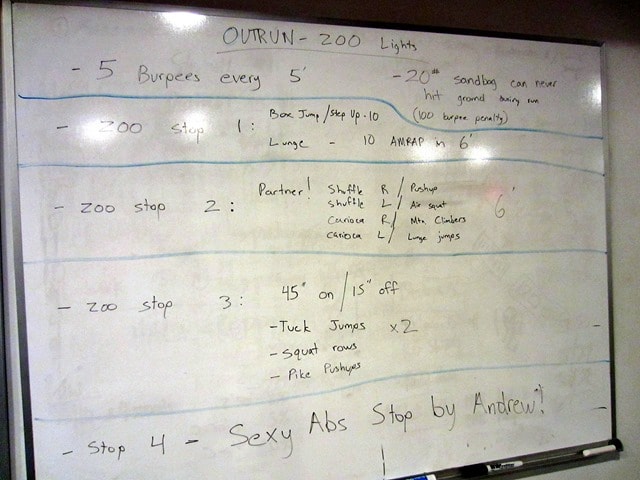 OUTRUN - ZOO Lights
- 5 Burpees every 5'
- 20# sandbag can never
hit ground during run
(100 burpee penalty)
- ZOO stop 1: Box Jump/Step Up · 10
Lunge - 10 AMRAP in 6'
- ZOO stop 2: Partner! Shuffle R / Pushup
shuffle L / Air squat
Carioca R / Mtn. Climbers
carioca L / Lunge jumps
6'
- ZOO stop 3: 45" on / 15" off
- Tuck Jumps x2
- Squat rows
- Pike Pushups
- Stop 4 - Sexy Abs Stop by Andrew!